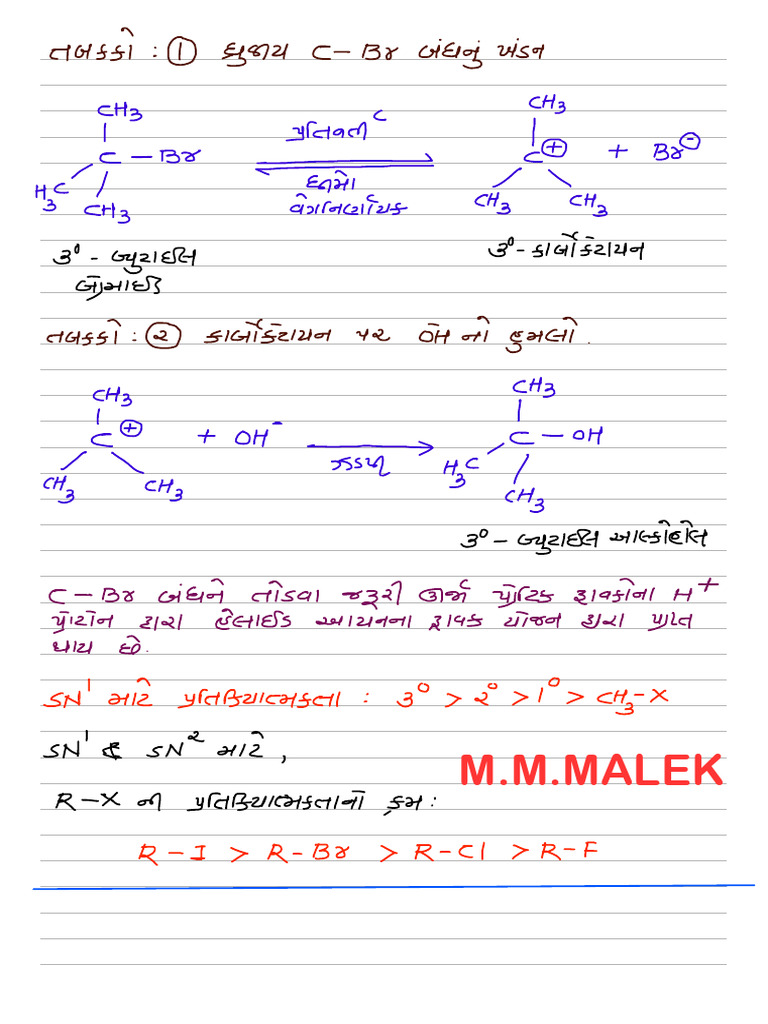 તબક્કો : ① ધ્રુવીય C – Br બંધનું ખંડન
CH3
C – Br
H3C
CH3
પ્રતિવર્તી
ધીમો
વેગનિર્ણાયક
CH3
C⊕ + Br⊖
CH3 CH3
3° - બ્યુટાઈલ
બ્રોમાઈડ
3° - કાર્બોકેટાયન
તબક્કો : ② કાર્બોકેટાયન પર OH નો હુમલો.
CH3
C⊕ + OH⁻
CH3 CH3
ઝડપી
CH3
C – OH
H3C
CH3
3° – બ્યુટાઈલ આલ્કોહોલ
C – Br બંધને તોડવા જરૂરી ઊર્જા પ્રોટિક દ્રાવકોના H⁺
પ્રોટોન દ્વારા હેલાઈડ આયનના દ્રાવક યોજન દ્વારા પ્રાપ્ત
થાય છે.
SN¹ માટે પ્રતિક્રિયાત્મકતા : 3° > 2° > 1° > CH3–X
SN¹ & SN² માટે,
M.M.MALEK
R–X ની પ્રતિક્રિયાત્મકતાનો ક્રમ :
R – I > R – Br > R – Cl > R – F